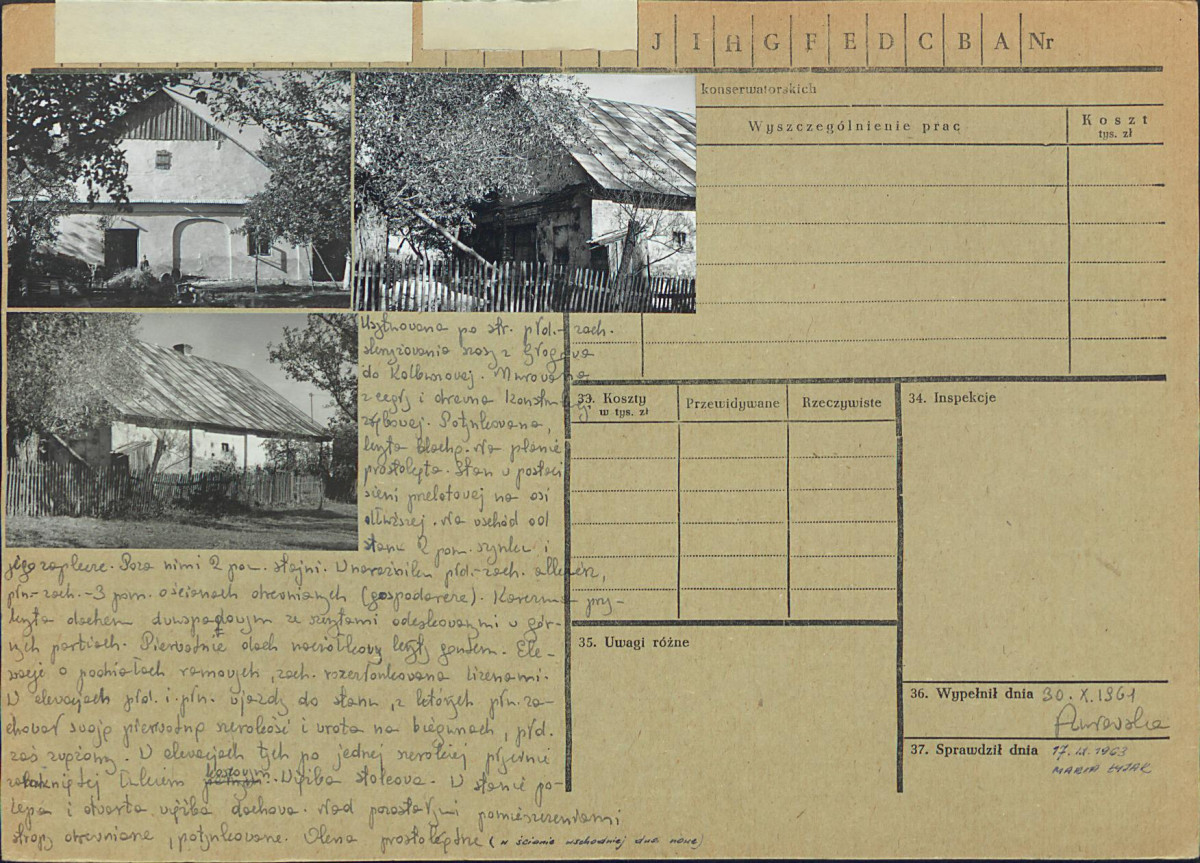 J I H G F E D C B A Nr
konserwatorskich
Wyszczególnienie prac
Koszt
tys. zł
Usytuowana po str. płd.-zach.
skrzyżowania szosy z Głogowa
do Kolbuszowej. Murowana
z cegły i drewna konstrukcji
zrębowej. Potynkowana,
kryta blachą. Na planie
prostokąta. Stan w postaci
sieni przelotowej na osi
dłuższej. Na wschód od
stanu 2 pom. szynku i
jego zaplecze. Poza nimi 2 pom. stajni. W narożniku płd.-zach. alkierz,
płn.-zach. - 3 pom. o ścianach drewnianych (gospodarcze). Karczma przy-
kryta dachem dwuspadowym ze szczytami odeskowanymi w gór-
nych partiach. Pierwotnie dach naczółkowy kryty gontem. Ele-
wacje o podziałach ramowych, zach. rozczłonkowana lizenami.
W elewacjach płd. i płn. wjazdy do stanu, z których płn. za-
chował swoją pierwotną szerokość i wrota na biegunach, płd.
zaś zwężony. W elewacjach tych po jednej szerokiej płycinie
zamkniętej łukiem koszowym. Więźba stolcowa. W stanie po-
lepa i otwarta więźba dachowa. Nad pozostałymi pomieszczeniami
stropy drewniane, potynkowane. Okna prostokątne (w ścianie wschodniej dwa nowe)
33. Koszty
w tys. zł
Przewidywane
Rzeczywiste
34. Inspekcje
35. Uwagi różne
36. Wypełnił dnia 30. X. 1961
37. Sprawdził dnia 17. IX. 1963
MARIA ŁYŻAK